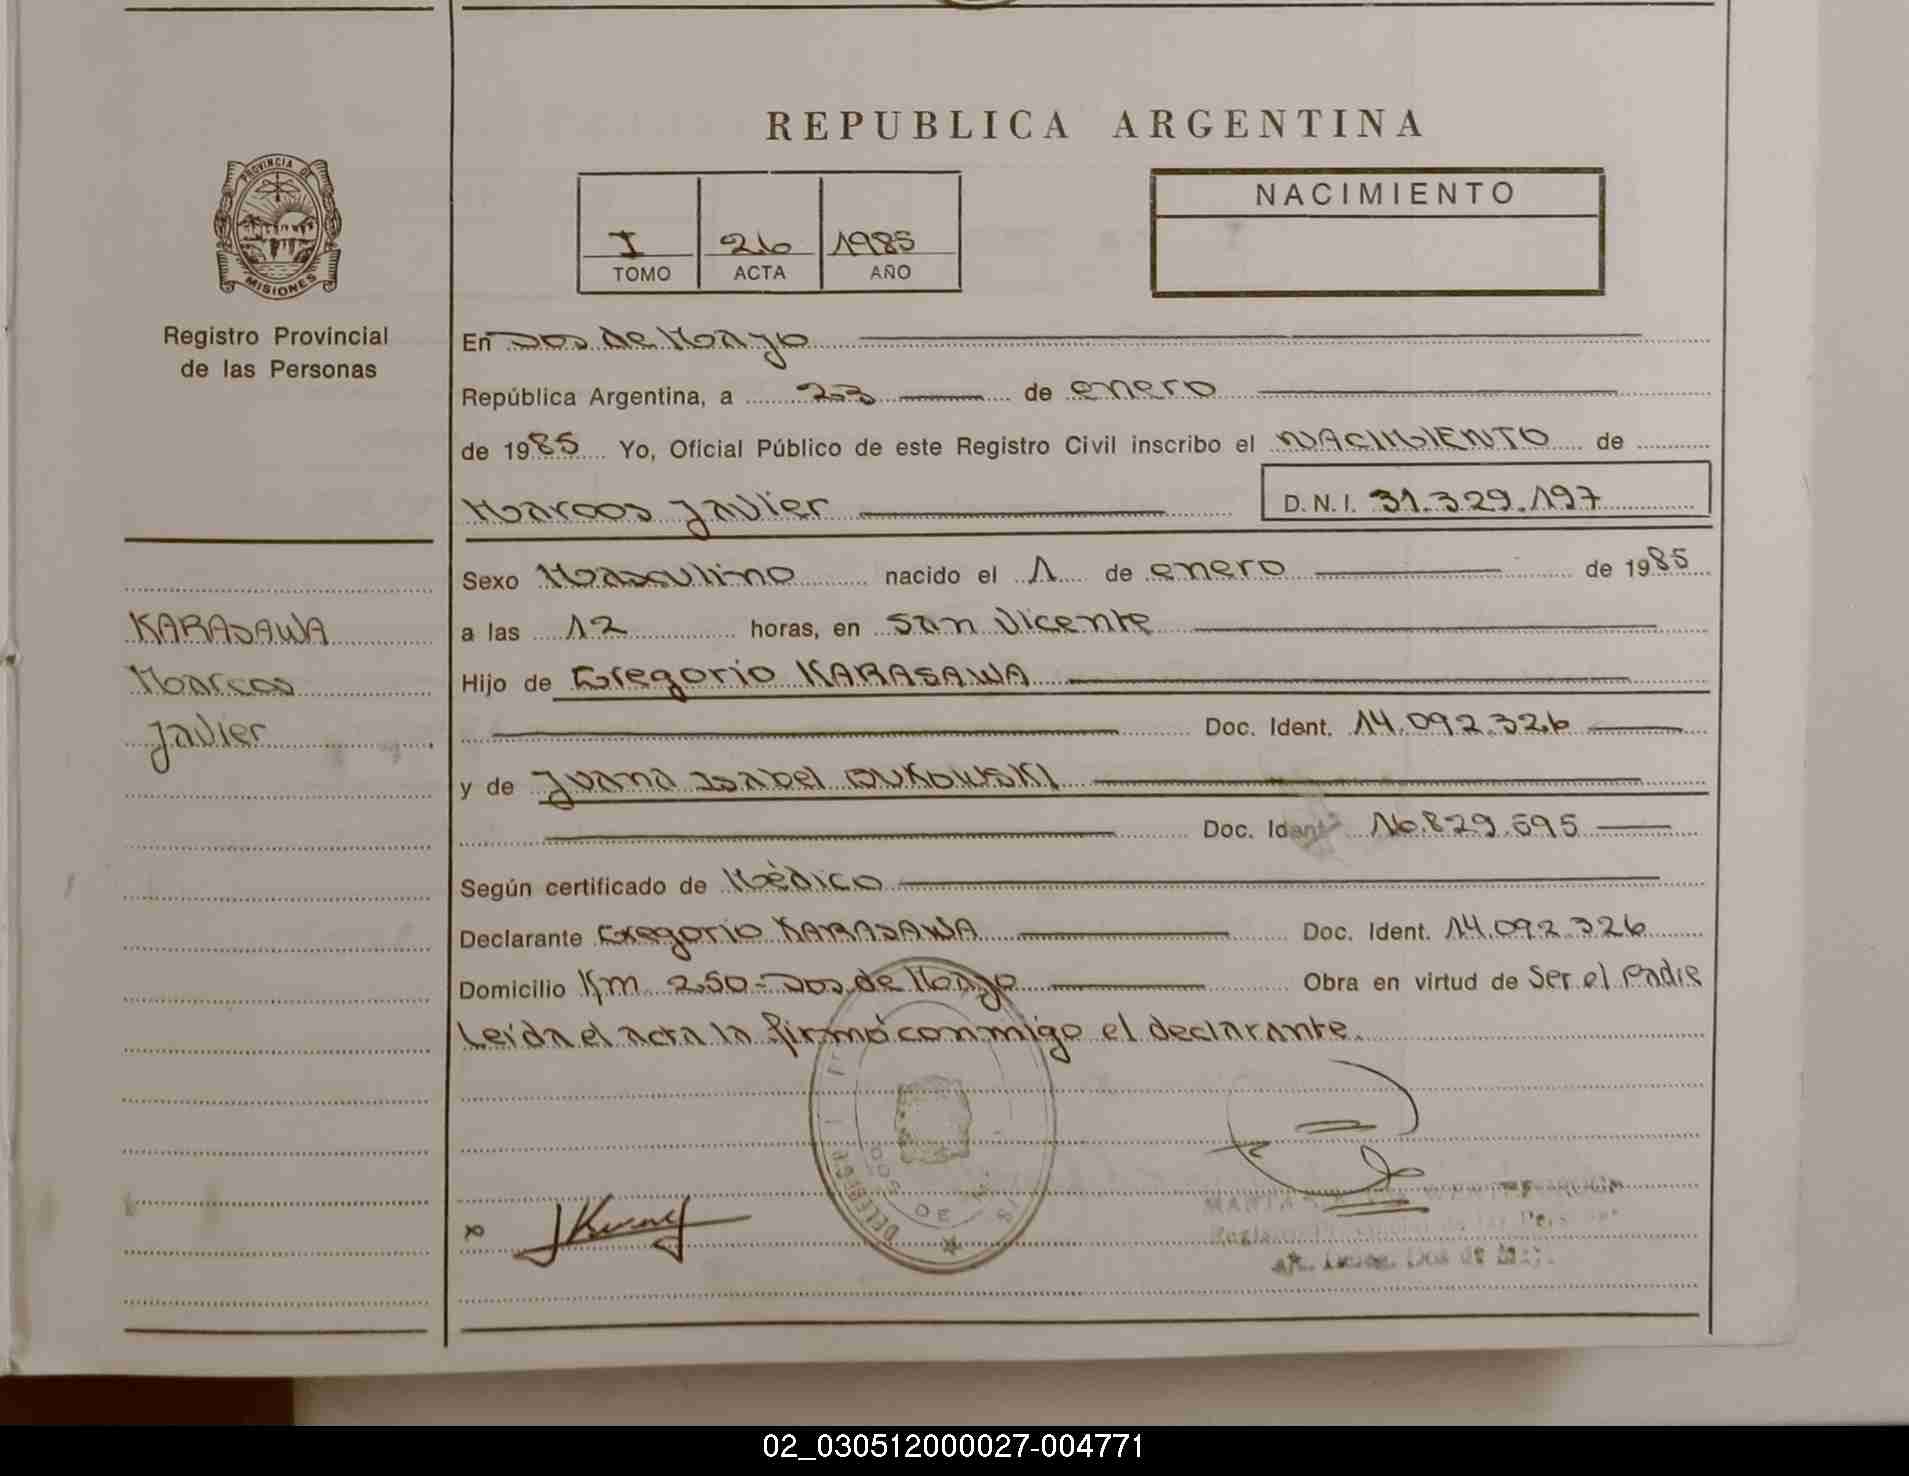 REPUBLICA ARGENTINA
PROVINCIA DE
MISIONES
Registro Provincial
de las Personas
I 26 1985
TOMO ACTA AÑO
NACIMIENTO
En Dos de Mayo
República Argentina, a 23 de enero
de 1985 Yo, Oficial Público de este Registro Civil inscribo el NACIMIENTO de
Marcos Javier D.N.I. 31.329.197
KARASAWA
Marcos
Javier
Sexo Masculino nacido el 1 de enero de 1985
a las 12 horas, en San Vicente
Hijo de Gregorio KARASAWA
Doc. Ident. 14.092.326
y de Juana Isabel BUKOWSKI
Doc. Ident. 16.829.595
Según certificado de Médico
Declarante Gregorio KARASAWA Doc. Ident. 14.092.326
Domicilio Km 250 - Dos de Mayo Obra en virtud de Ser el Padre
Leída el acta la firmó conmigo el declarante.
02_030512000027-004771